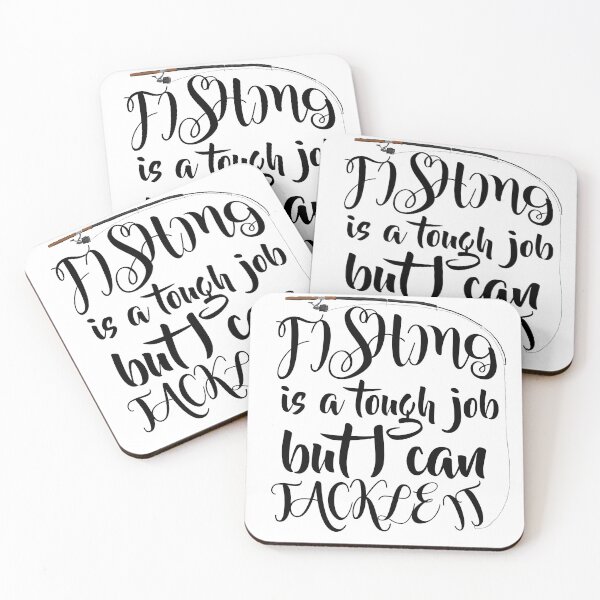 FISHING
is a tough job
FISHING
is a tough job
but I can
FISHING
is a tough job
but I
TACKLE
FISHING
is a tough job
but I can
TACKLE IT